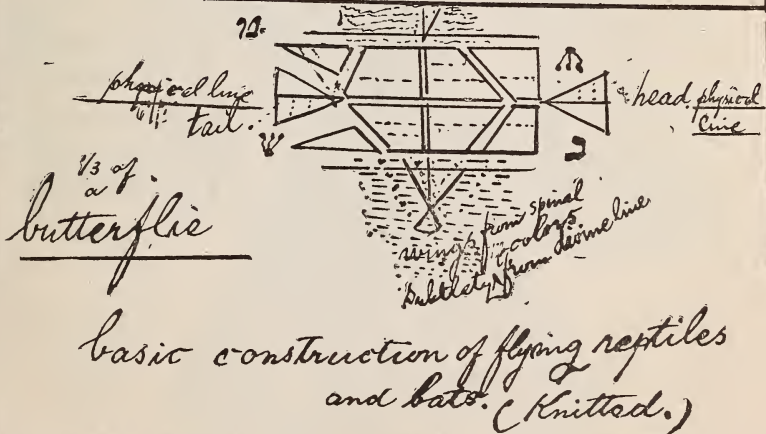 physical line
tail.
head physical
line
1/3 of
a
butterflie
wings from spinal
colors
from divine line
basic construction of flying reptiles
and bats. (Knitted.)